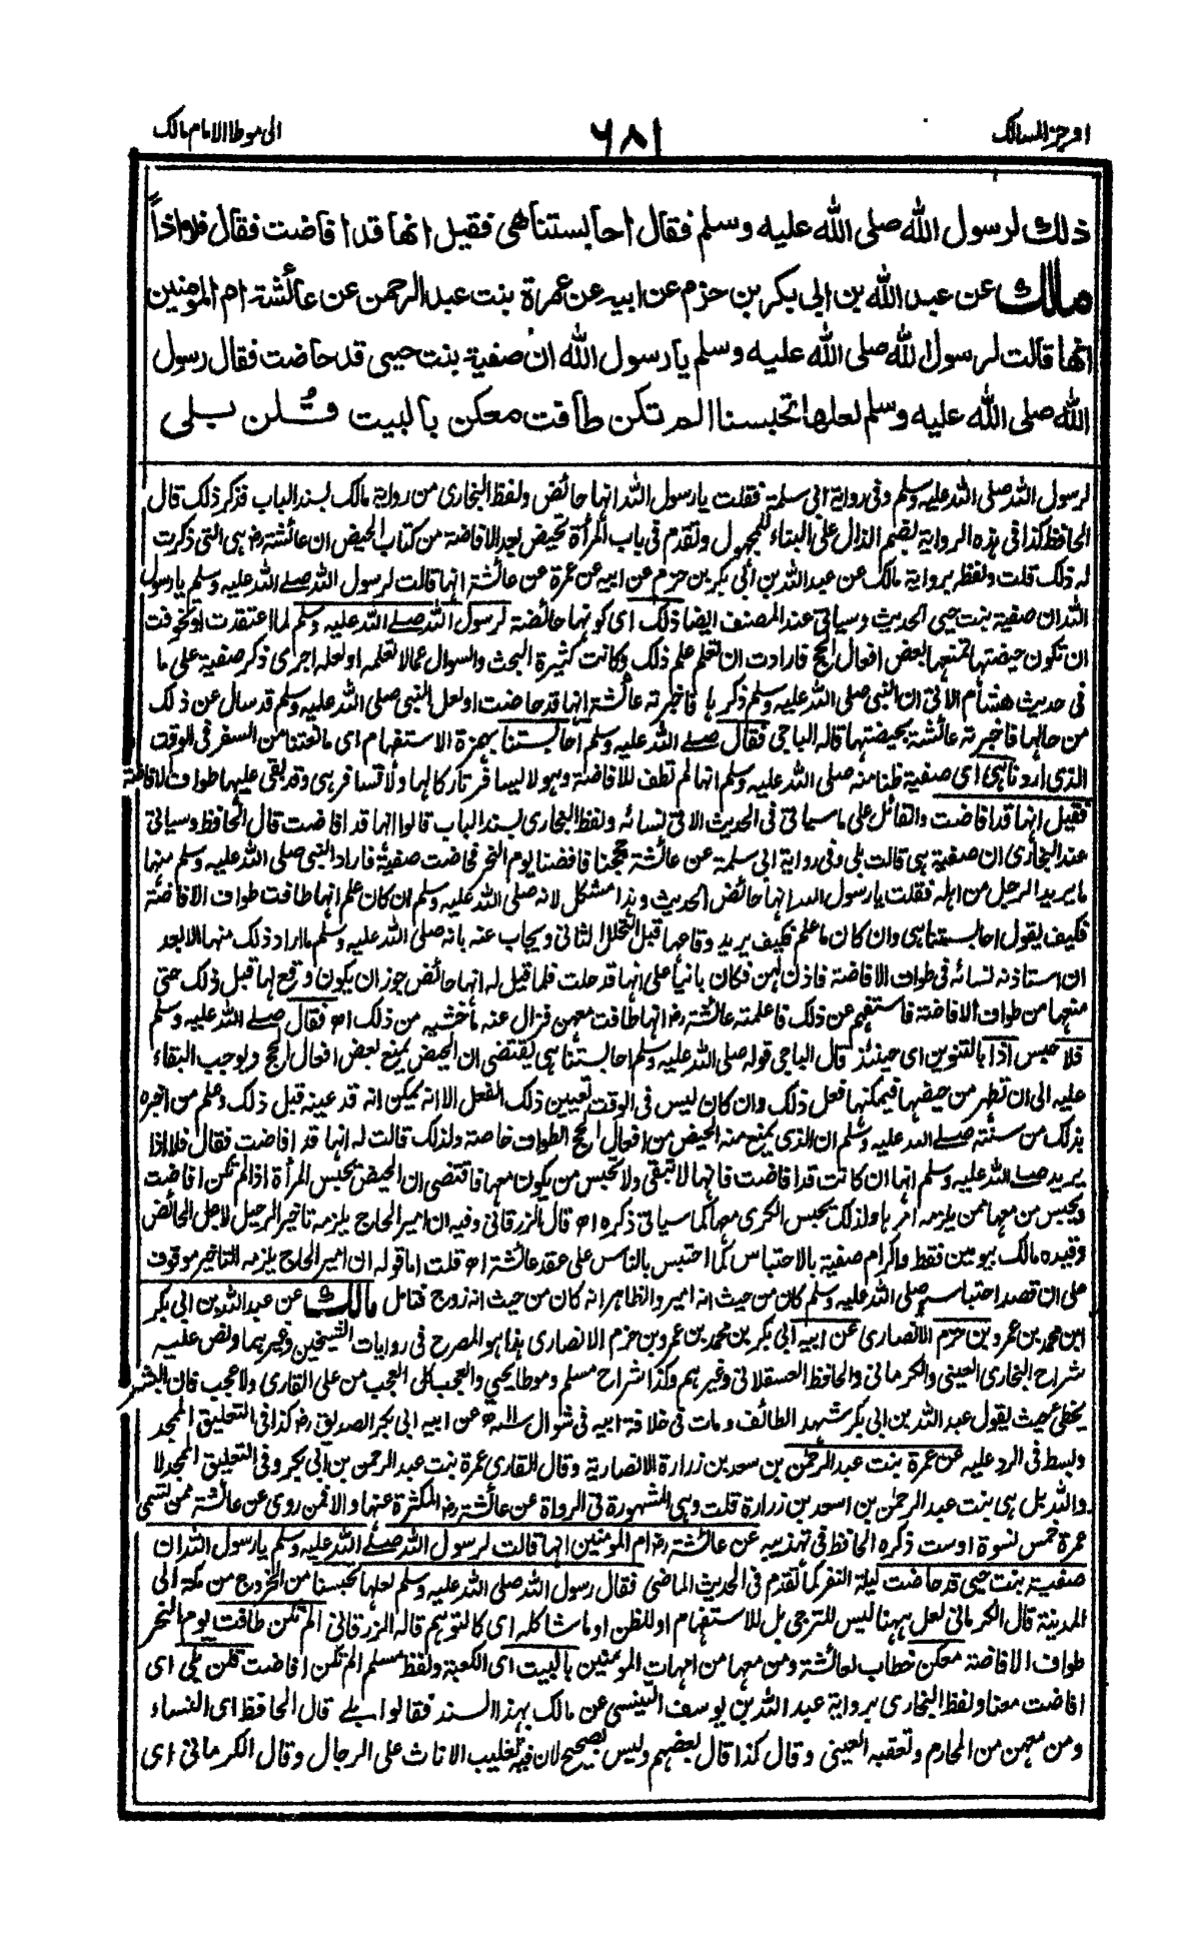 اوجز المسالك
٦٨١
الى موطا الامام مالك
ذلك لرسول الله صلى الله عليه وسلم فقال احابستنا هى فقيل انها قد افاضت فقال فلا اذاً
مالك عن عبد الله بن ابى بكر بن حزم عن ابيه عن عمرة بنت عبد الرحمن عن عائشة ام المومنين
انها قالت لرسول الله صلى الله عليه وسلم يا رسول الله ان صفية بنت حيى قد حاضت فقال رسول
الله صلى الله عليه وسلم لعلها تحبسنا الم تكن طافت معكن بالبيت قلن بلى
لرسول الله صلى الله عليه وسلم وفى رواية ابى سلمة فقلت يا رسول الله انها حائض ولفظ البخارى من رواية مالك بسند الباب فذكر ذلك قال
الحافظ كذا فى هذه الرواية بضم الذال على البناء للمجهول وتقدم فى باب المرأة تحيض بعد الافاضة من كتاب الحيض ان عائشة رض هى التى ذكرت
له ذلك قلت ولفظه برواية مالك عن عبد الله بن أبى بكر بن حزم عن ابيه عن عمرة عن عائشة انها قالت لرسول الله صلے الله عليه وسلم يا رسول
الله ان صفية بنت حيى الحديث وسياتى عند المصنف ايضا ذلك اى كونها حائضة لرسول الله صلے الله عليه وسلم لما اعتقدت او تخوفت
ان تكون حيضتها تمنعها بعض افعال الحج فارادت ان تعلم علم ذلك وكانت كثيرة البحث والسوال عما لا تعلمه او لعله اجرى ذكر صفية على ما
فى حديث هشام الاتى ان النبى صلى الله عليه وسلم ذكرها فاخبرته عائشة انها قد حاضت او لعل النبى صلى الله عليه وسلم قد سال عن ذلك
من حالها فاخبرته عائشة بحيضتها قاله الباجى فقال صلے الله عليه وسلم أحابستنا بهمزة الاستفهام اى مانعتنا من السفر فى الوقت
الذى اردناه هى اى صفية ظنا منه صلى الله عليه وسلم انها لم تطف للافاضة وهو لا ليسافر تاركا لها ولا تسافر هى وقد بقى عليها طواف الافاضة
فقيل انها قد افاضت والقائل على ما سياتى فى الحديث الاتى نسائه ولفظ البخارى بسند الباب قالوا انها قد افاضت قال الحافظ وسياتى
عند البخارى ان صفية هى قالت بلى وفى رواية ابى سلمة عن عائشة حججنا فافضنا يوم النحر فحاضت صفية فاراد النبى صلى الله عليه وسلم منها
ما يريد الرجل من اهله فقلت يا رسول الله انها حائض الحديث وهذا مشكل لانه صلى الله عليه وسلم ان كان علم انها طافت طواف الافاضة
فكيف يقول احابستنا هى وان كان ما علم فكيف يريد وقاعها قبل التحلل الثانى ويجاب عنه بانه صلى الله عليه وسلم ما اراد ذلك منها الا بعد
ان استاذنه نسائه فى طواف الافاضة فاذن لهن فكان بانيا على انها قد حلت فلما قيل له انها حائض جوز ان يكون وقع لها قبل ذلك حتى
منعها من طواف الافاضة فاستفهم عن ذلك فاعلمته عائشة رض انها طافت معهن فزال عنه ما خشيه من ذلك اه فقال صلے الله عليه وسلم
فلا حبس اذا بالتنوين اى حينئذ قال الباجى قوله صلى الله عليه وسلم احابستنا هى يقتضى ان الحيض يمنع بعض افعال الحج ويوجب البقاء
عليه الى ان تطهر من حيضها فيمكنها فعل ذلك وان كان ليس فى الوقت تعيين ذلك الفعل الا انه يمكن انه قد عينه قبل ذلك وعلم من اخبره
بذلك من سنته صلے الله عليه وسلم ان الذى يمنع منه الحيض من افعال الحج الطواف خاصة ولذلك قالت له انها قد افاضت فقال فلا اذا
يريد صلے الله عليه وسلم انها ان كانت قد افاضت فانها لا تبقى ولا تحبس من يكون معها فاقتضى ان الحيض يحبس المرأة اذا لم تكن افاضت
ويحبس من معها ممن يلزمه امرها ولذلك يحبس الكرى معها كما سياتى ذكره اه قال الزرقانى وفيه ان امير الحاج يلزمه تاخير الرحيل لاجل الحائض
وقيده مالك بيومين فقط واكرام صفية بالاحتباس كما احتبس بالناس على عقد عائشة اه قلت اما قوله ان امير الحاج يلزمه التاخير موقوف
على ان قصد احتباسه صلى الله عليه وسلم كان من حيث انه امير والظاهر انه كان من حيث انه زوج فتامل مالك عن عبد الله بن ابى بكر
ابن محمد بن عمرو بن حزم الانصارى عن ابيه ابى بكر بن محمد بن عمرو بن حزم الانصارى هذا هو المصرح فى روايات الشيخين وغيرهما ونص عليه
شراح البخارى العينى والكرمانى والحافظ العسقلانى وغيرهم وكذا شراح مسلم وموطا يحيى والعجب كل العجب من على القارى ولا عجب فان البشر
يخطى حيث يقول عبد الله بن ابى بكر شهد الطائف ومات فى خلافة ابيه فى شوال سنة عن ابيه ابى بكر الصديق رض كذا فى التعليق الممجد
وبسط فى الرد عليه عن عمرة بنت عبد الرحمٰن بن سعد بن زرارة الانصارية وقال القارى عمرة بنت عبد الرحمن بن ابى بكر وفى التعليق الممجد لا
والله بل هى بنت عبد الرحمٰن بن اسعد بن زرارة قلت وهى المشهورة فى الرواة عن عائشة رض المكثرة عنها والا فمن روى عن عائشة ممن تسمى
عمرة خمس نسوة او ست ذكره الحافظ فى تهذيبه عن عائشة رض ام المومنين انها قالت لرسول الله صلے الله عليه وسلم يا رسول الله ان
صفية بنت حيى قد حاضت ليلة النفر كما تقدم فى الحديث الماضى فقال رسول الله صلى الله عليه وسلم لعلها تحبسنا من الخروج من مكة الى
المدينة قال الكرمانى لعل ههنا ليس للترجى بل للاستفهام او للظن او ما شاكله اى كالتوهم قاله الزرقانى الم تكن طافت يوم النحر
طواف الافاضة معكن خطاب لعائشة ومن معها من امهات المومنين بالبيت اى الكعبة ولفظ مسلم الم تكن افاضت قلن بلى اى
افاضت معنا ولفظ البخارى برواية عبد الله بن يوسف التنيسى عن مالك بهذا السند فقالوا بلے قال الحافظ اى النساء
ومن معهن من المحارم وتعقبه العينى وقال كذا قال بعضهم وليس بصحيح لان فيه تغليب الاناث على الرجال وقال الكرمانى اى